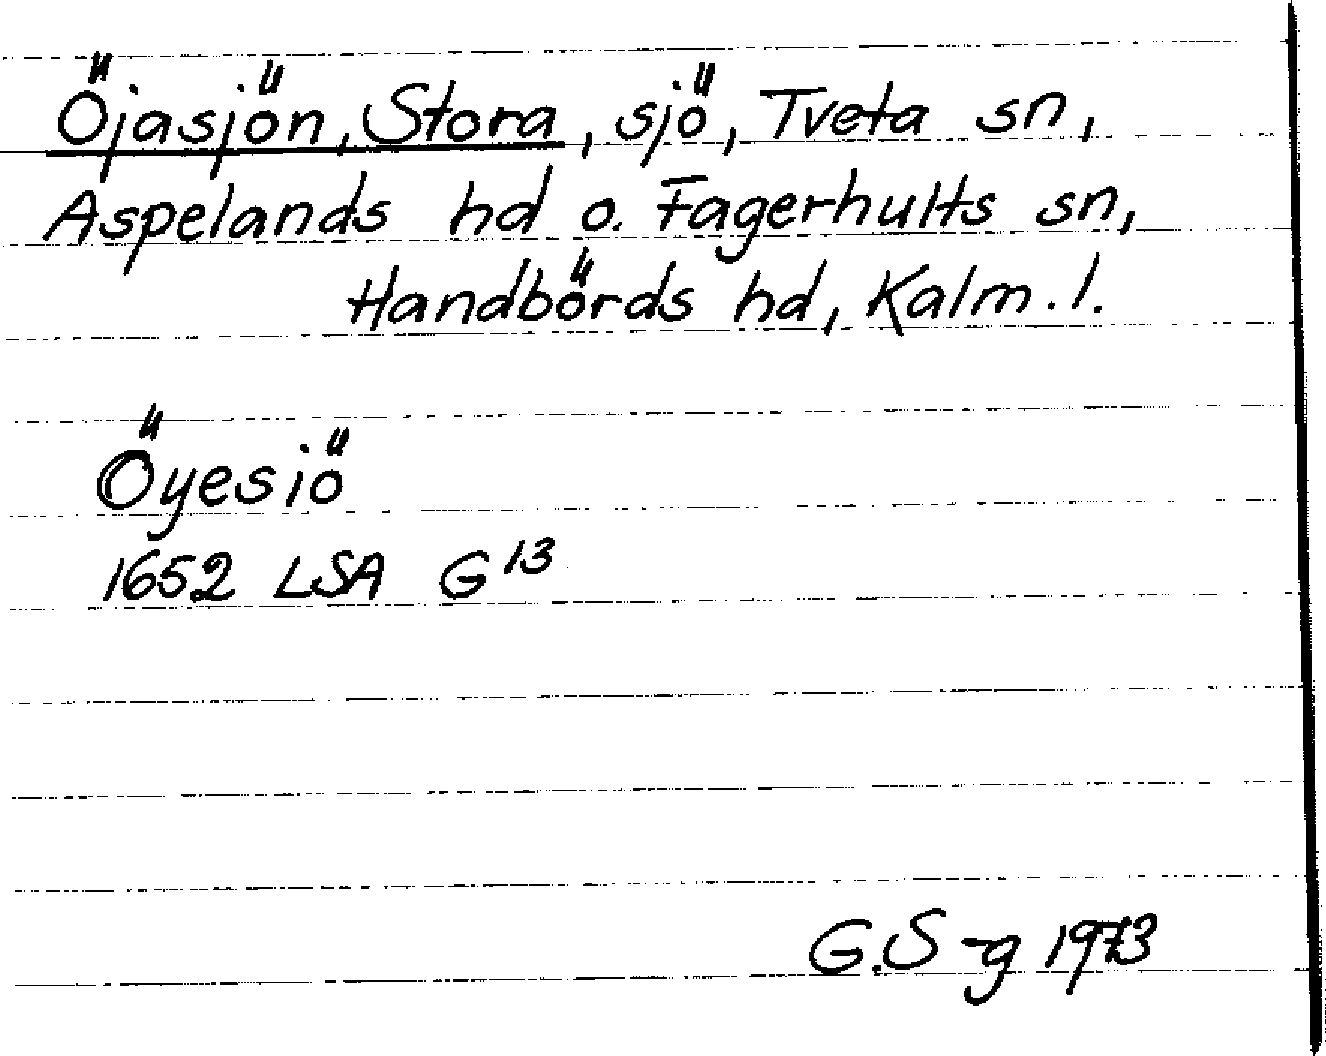 Öjasjön, Stora, sjö, Tveta sn,
Aspelands hd o. Fagerhults sn,
Handbörds hd, Kalm. l.
Öyesiö
1652 LSA G 13
G.S-g 1973